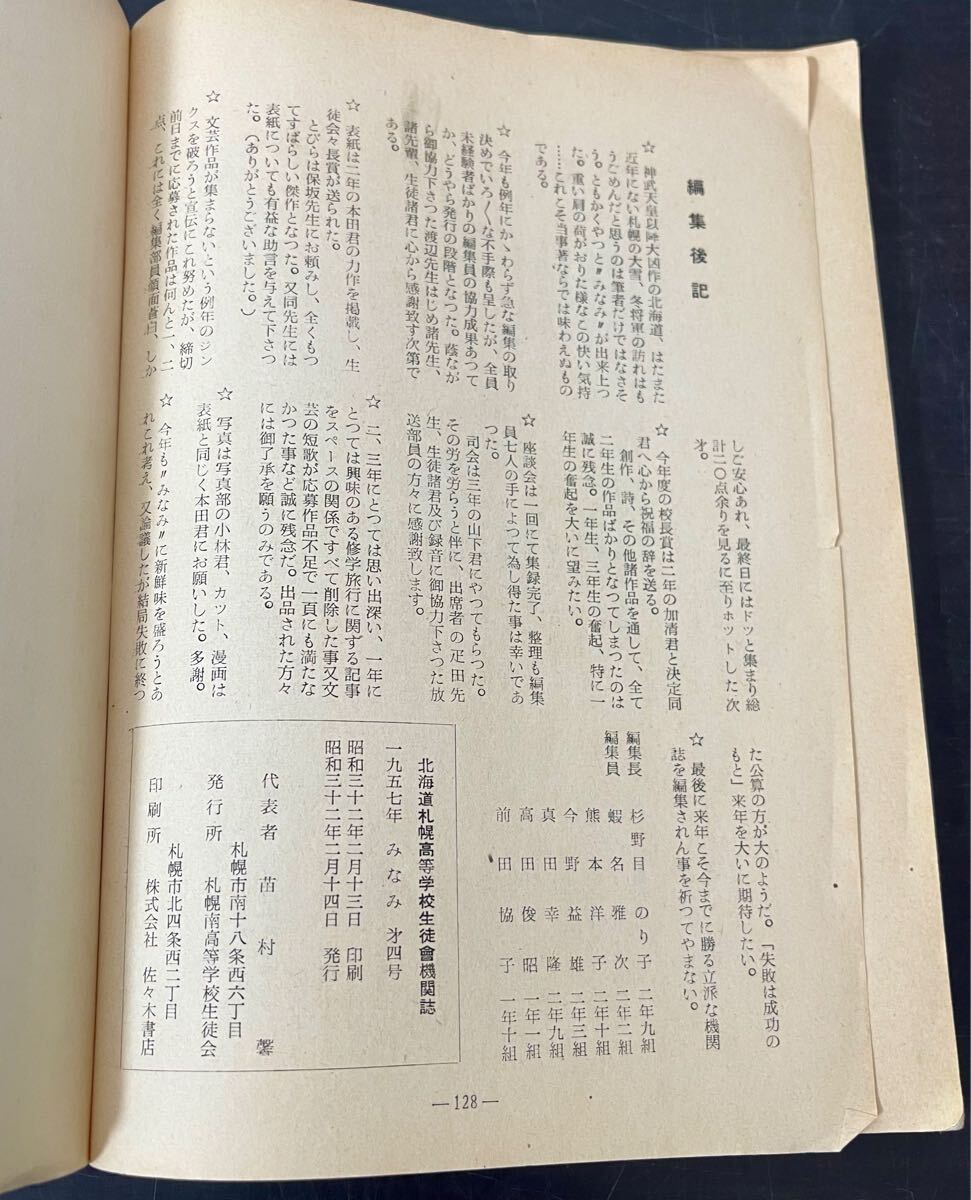 編集後記
☆ 神武天皇以降大凶作の北海道、はたまた
近年にない札幌の大雪、冬将軍の訪れはも
うごめんだと思うのは筆者だけではなさそ
う。ともかくやつと〝みなみ〟が出来上つ
た。重い肩の荷がおりた様なこの快い気持
……これこそ当事者ならでは味わえぬもの
である。
☆ 今年も例年にかゝわらず急な編集の取り
決めでいろ〱な不手際も呈したが、全員
未経験者ばかりの編集員の協力成果あつて
か、どうやら発行の段階となつた。蔭なが
ら御協力下さつた渡辺先生はじめ諸先生、
諸先輩、生徒諸君に心から感謝致す次第で
ある。
☆ 表紙は二年の本田君の力作を掲載し、生
徒会々長賞が送られた。
とびらは保坂先生にお頼みし、全くもつ
てすばらしい傑作となつた。又同先生には
表紙についても有益な助言を与えて下さつ
た。(ありがとうございました。)
☆ 文芸作品が集まらないという例年のジン
クスを破ろうと宣伝にこれ努めたが、締切
前日までに応募された作品は何んと一、二
点、これには全く編集部員顔面蒼白、しか
しご安心あれ、最終日にはドツと集まり総
計二〇点余りを見るに至りホツトした次
才。
☆ 今年度の校長賞は二年の加清君と決定同
君へ心から祝福の辞を送る。
創作、詩、その他諸作品を通して、全て
二年生の作品ばかりとなつてしまつたのは
誠に残念。一年生、三年生の奮起、特に一
年生の奮起を大いに望みたい。
☆ 座談会は一回にて集録完了、整理も編集
員七人の手によつて為し得た事は幸いであ
つた。
司会は三年の山下君にやつてもらつた。
その労を労らうと伴に、出席者の疋田先
生、生徒諸君及び録音に御協力下さつた放
送部員の方々に感謝致します。
☆ 二、三年にとつては思い出深い、一年に
とつては興味のある修学旅行に関する記事
をスペースの関係ですべて削除した事又文
芸の短歌が応募作品不足で一頁にも満たな
かつた事など誠に残念だ。出品された方々
には御了承を願うのみである。
☆ 写真は写真部の小林君、カツト、漫画は
表紙と同じく本田君にお願いした。多謝。
☆ 今年も〝みなみ〟に新鮮味を盛ろうとあ
れこれ考え、又論議したが結局失敗に終つ
た公算の方が大のようだ。「失敗は成功の
もと」来年を大いに期待したい。
☆ 最後に来年こそ今までに勝る立派な機関
誌を編集されん事を祈つてやまない。
編集長 杉野目 のり子 二年九組
編集員 蝦名 雅次 二年二組
熊本 洋子 二年十組
今野 益雄 二年三組
真田 幸隆 二年九組
高田 俊昭 一年一組
前田 協子 一年十組
北海道札幌高等学校生徒會機関誌
一九五七年 みなみ 才四号
昭和三十二年二月十三日 印刷
昭和三十二年二月十四日 発行
代表者 苗村 馨
札幌市南十八条西六丁目
発行所 札幌南高等学校生徒会
札幌市北四条西二丁目
印刷所 株式会社 佐々木書店
—128—